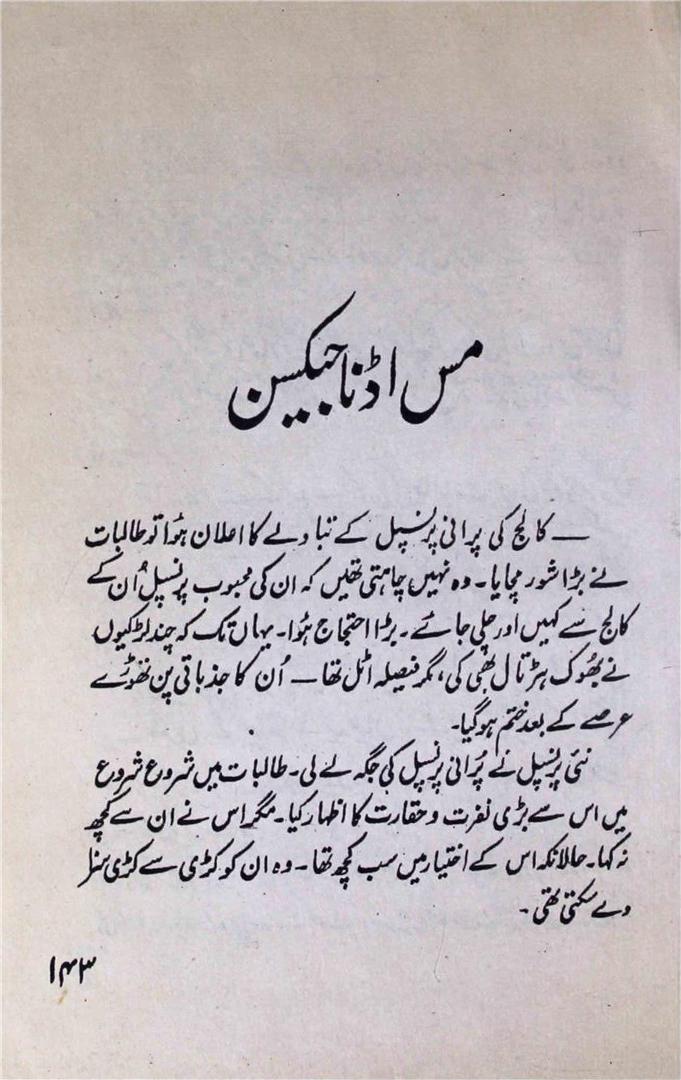 مس اڈنا جیکسن
— کالج کی پرانی پرنسپل کے تبادلے کا اعلان ہؤا تو طالبات
نے بڑا شور مچایا۔ وہ نہیں چاہتی تھیں کہ ان کی محبوب پرنسپل اُن کے
کالج سے کہیں اور چلی جائے۔ بڑا احتجاج ہؤا۔ یہاں تک کہ چند لڑکیوں
نے بھُوک ہڑتال بھی کی، مگر فیصلہ اٹل تھا — اُن کا جذباتی پن تھوڑے
عرصے کے بعد ختم ہو گیا۔
نئی پرنسپل نے پُرانی پرنسپل کی جگہ لے لی۔ طالبات میں شروع شروع
میں اس سے بڑی نفرت و حقارت کا اظہار کیا۔ مگر اس نے ان سے کچھ
نہ کہا۔ حالانکہ اس کے اختیار میں سب کچھ تھا۔ وہ ان کو کڑی سے کڑی سزا
دے سکتی تھی۔
۱۴۳